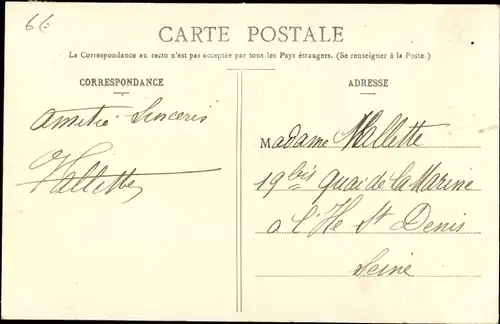 66
CARTE POSTALE
La Correspondance au recto n'est pas acceptée par tous les Pays étrangers. (Se renseigner à la Poste.)
CORRESPONDANCE
amitié Sinceris
Hallette
ADRESSE
Madame Hallette
19 bis quai de la Marine
a l'Ile St Denis
Seine